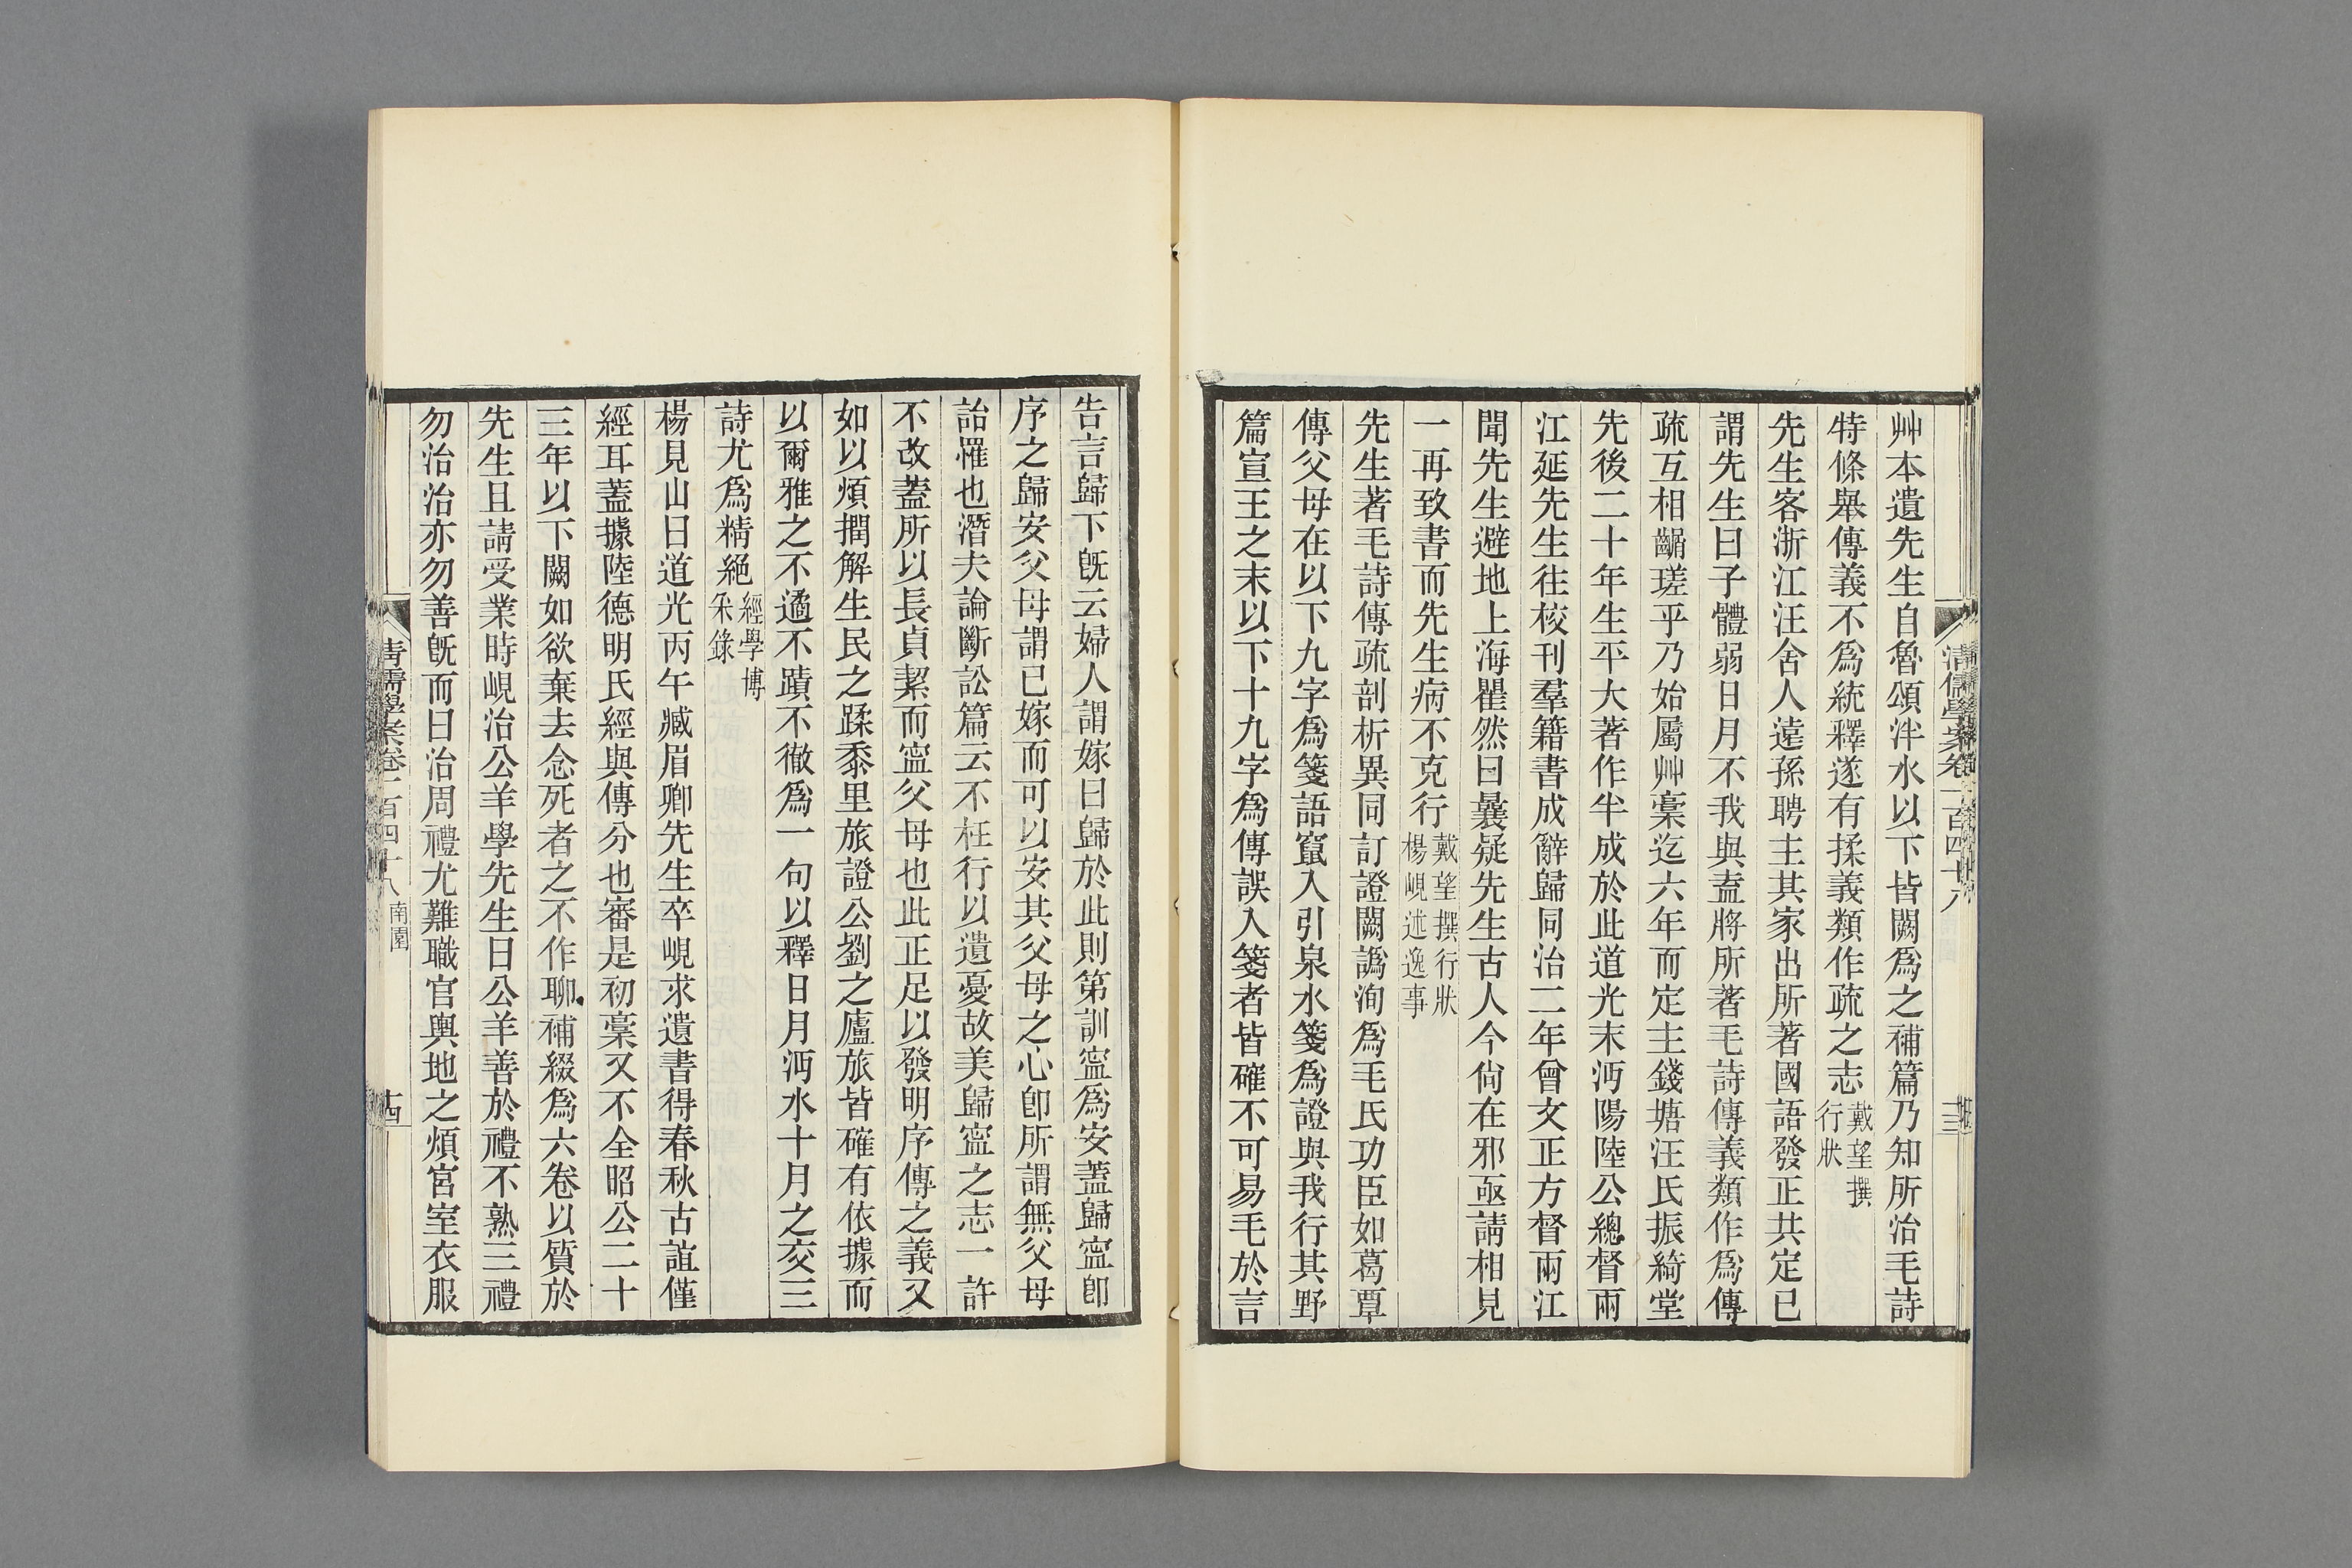 艸本遺先生自魯頌泮水以下皆闕爲之補篇乃知所治毛詩
特條舉傳義不爲統釋遂有揉義類作疏之志戴望撰行狀
先生客浙江汪舍人遠孫聘主其家出所著國語發正共定已
謂先生曰子體弱日月不我與盍將所著毛詩傳義類作爲傳
疏互相齺瑳乎乃始屬艸稾迄六年而定主錢塘汪氏振綺堂
先後二十年生平大著作半成於此道光末沔陽陸公總督兩
江延先生往校刊羣籍書成辭歸同治二年曾文正方督兩江
聞先生避地上海瞿然曰曩疑先生古人今尙在邪亟請相見
一再致書而先生病不克行戴望撰行狀楊峴述逸事
先生著毛詩傳疏剖析異同訂證闕譌洵爲毛氏功臣如葛覃
傳父母在以下九字爲箋語竄入引泉水箋爲證與我行其野
篇宣王之末以下十九字爲傳誤入箋者皆確不可易毛於言
告言歸下旣云婦人謂嫁曰歸於此則第訓寍爲安蓋歸寍卽
序之歸安父母謂已嫁而可以安其父母之心卽所謂無父母
詒罹也潛夫論斷訟篇云不枉行以遺憂故美歸寍之志一許
不改蓋所以長貞絜而寍父母也此正足以發明序傳之義又
如以煩撋解生民之蹂黍里旅證公劉之廬旅皆確有依據而
以爾雅之不遹不蹟不徹爲一句以釋日月沔水十月之交三
詩尤爲精絕經學博采錄
楊見山曰道光丙午臧眉卿先生卒峴求遺書得春秋古誼僅
經耳蓋據陸德明氏經與傳分也審是初稾又不全昭公二十
三年以下闕如欲棄去念死者之不作聊補綴爲六卷以質於
先生且請受業時峴治公羊學先生曰公羊善於禮不熟三禮
勿治治亦勿善旣而曰治周禮尤難職官輿地之煩宮室衣服
清儒學案卷一百四十八 南園
十四